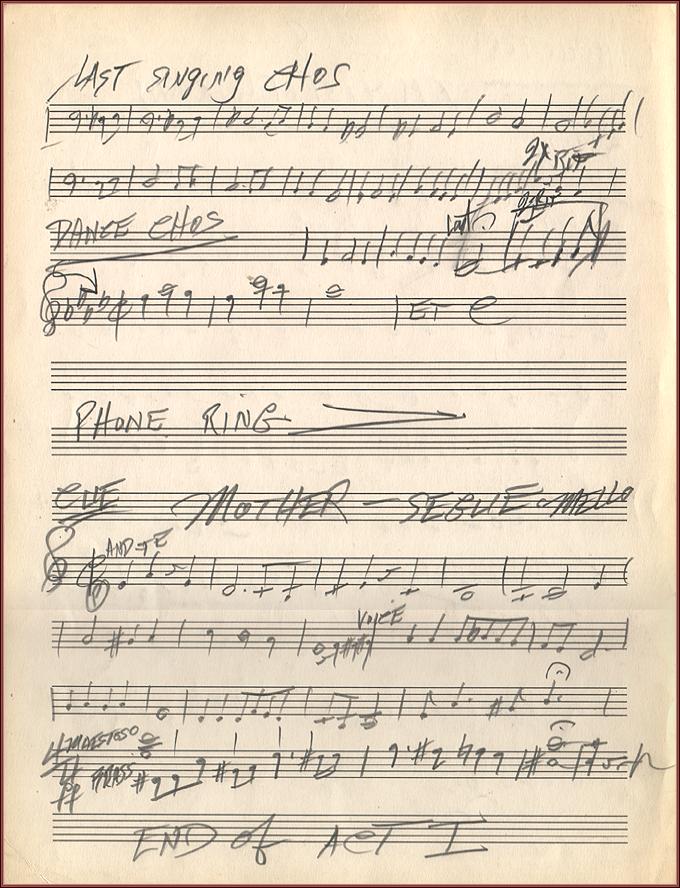 LAST singing CHOS
DANCE CHOS
PHONE RING
CUE MOTHER — SEGUE
AND-TE
VOICE
MAESTOSO
BRASS
ff
END of ACT I